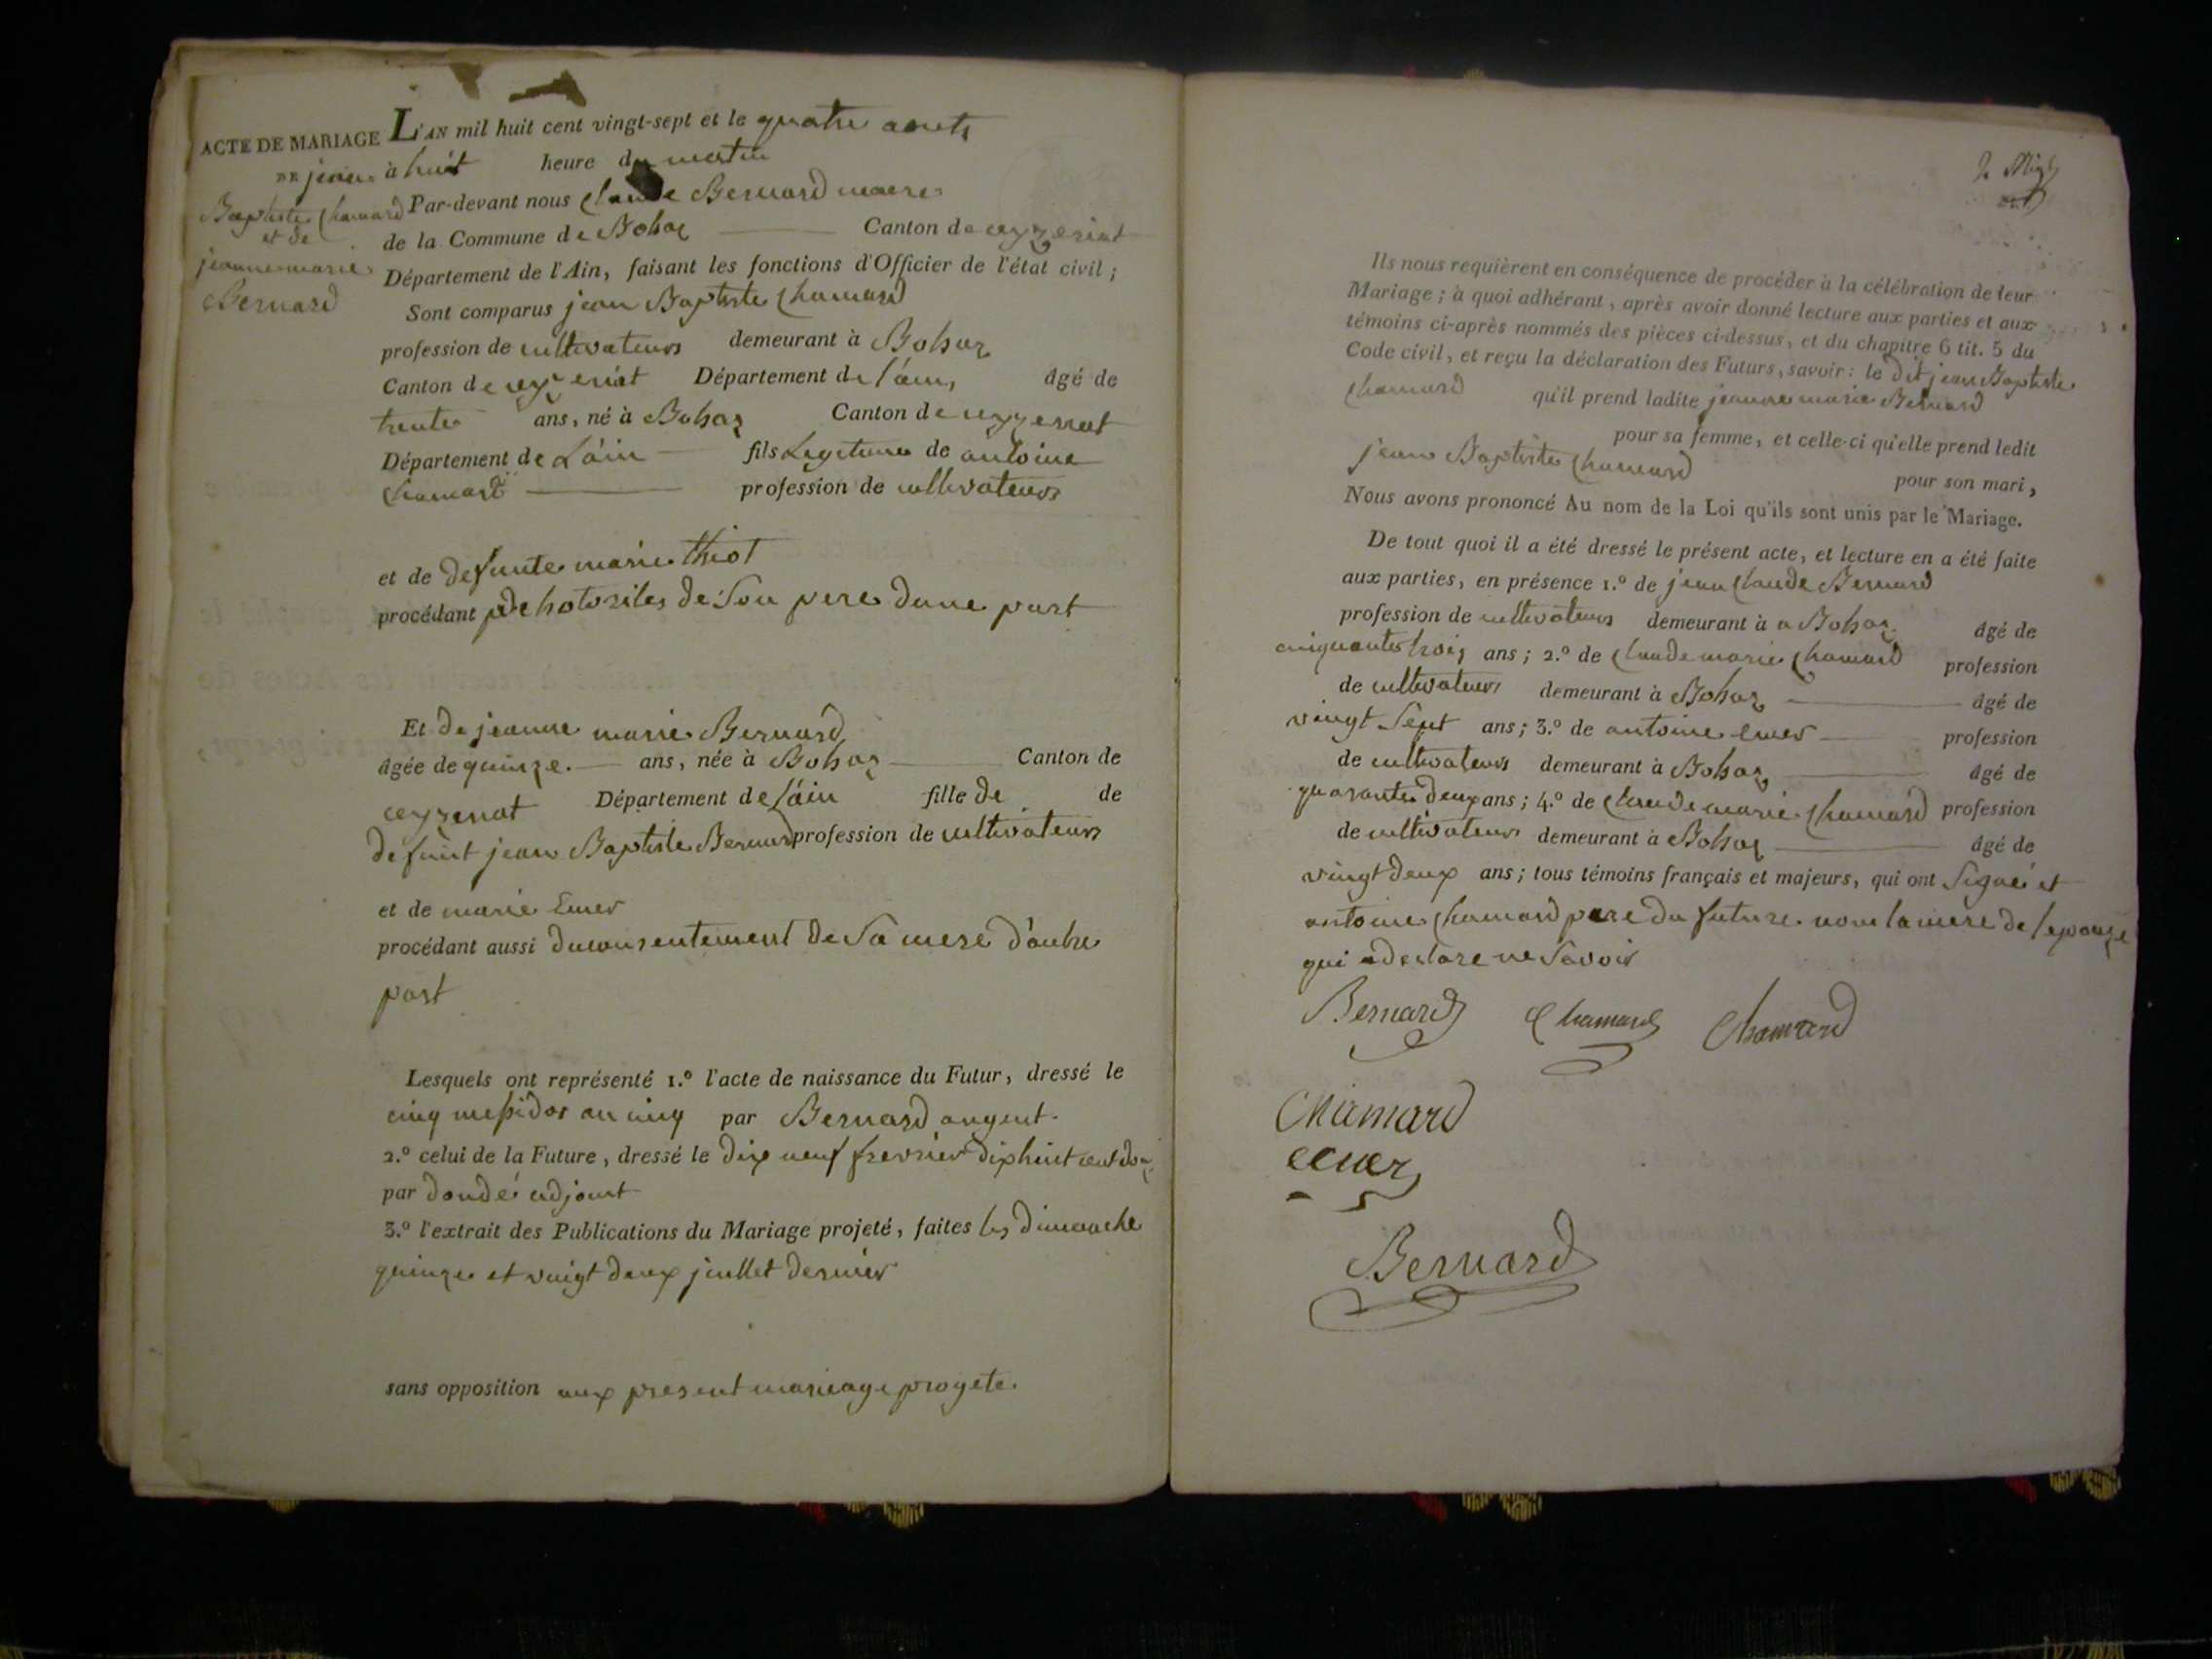 ACTE DE MARIAGE
DE jean
Baptiste Chamard
et de
jeanne marie
Bernard
L'AN mil huit cent vingt-sept et le quatre aouts
à huit heure du matin
Par-devant nous Claude Bernard maere
de la Commune de Bohas Canton de ceyzeriat
Département de l'Ain, faisant les fonctions d'Officier de l'état civil ;
Sont comparus jean Baptiste Chamard
profession de cultivateurs demeurant à Bohas
Canton de ceyzeriat Département de l'ain, âgé de
trente ans, né à Bohas Canton de ceyzeriat
Département de L'ain fils Legitime de antoine
Chamard profession de cultivateurs
et de defunte marie thiot
procédant de de son pere dune part
Et de jeanne marie Bernard
âgée de quinze ans, née à Bohas Canton de
ceyzeriat Département de l'ain fille de de
defunt jean Baptiste Bernard profession de cultivateurs
et de marie Emer
procédant aussi du consentement de Sa mere d'autre
part
Lesquels ont représenté 1.º l'acte de naissance du Futur, dressé le
cinq messidor an cinq par Bernard augent
2.º celui de la Future, dressé le dix neuf fevrier dix huit cent douz
par dondé adjoint
3.º l'extrait des Publications du Mariage projeté, faites les dimanche
quinze et vingt deux juillet dernier
sans opposition aux present mariage progete
2.
Ils nous requièrent en conséquence de procéder à la célébration de leur
Mariage ; à quoi adhérant, après avoir donné lecture aux parties et aux
témoins ci-après nommés des pièces ci-dessus, et du chapitre 6 tit. 5 du
Code civil, et reçu la déclaration des Futurs, savoir : le dit jean Baptiste
Chamard qu'il prend ladite jeanne marie Bernard
pour sa femme, et celle-ci qu'elle prend ledit
jean Baptiste Chamard pour son mari,
Nous avons prononcé Au nom de la Loi qu'ils sont unis par le Mariage.
De tout quoi il a été dressé le présent acte, et lecture en a été faite
aux parties, en présence 1.º de jean Claude Bernard
profession de cultivateurs demeurant à a Bohas âgé de
cinquante trois ans ; 2.º de Claude marie Chamard profession
de cultivateurs demeurant à Bohas âgé de
vingt Sept ans ; 3.º de antoine Emer profession
de cultivateurs demeurant à Bohas âgé de
quarante deux ans ; 4.º de Claude marie Chamard profession
de cultivateurs demeurant à Bohas âgé de
vingt deux ans ; tous témoins français et majeurs, qui ont Signé et
antoine Chamard pere du future non la mere de lepouze
qui a declare ne Savoir
Bernard Chamard Chamard
Chamard
Bernard